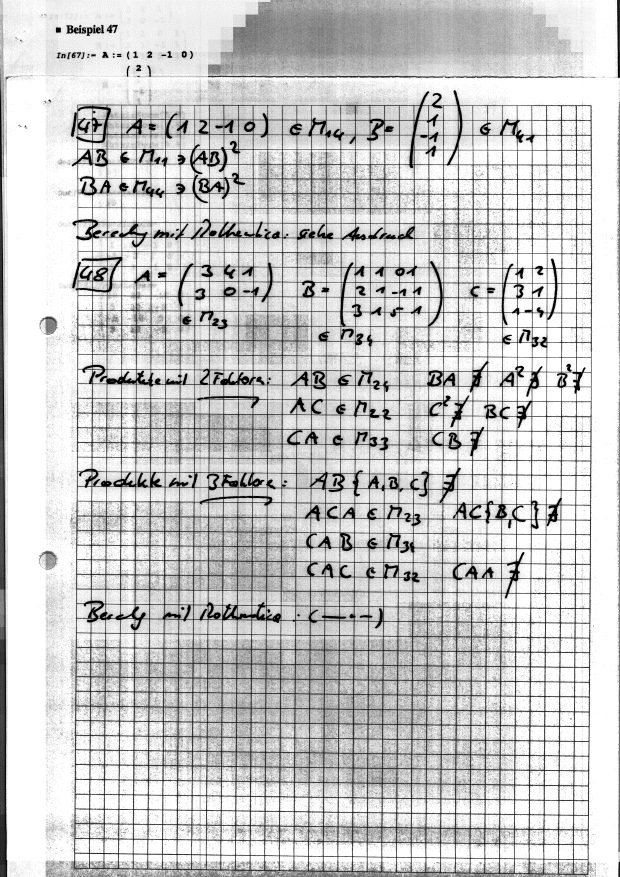 ■ Beispiel 47
In[67]:= A := (1 2 -1 0)
(2)
47 A = (1 2 -1 0) ∈ M₁₄, B = (2 1 -1 1) ∈ M₄₁
AB ∈ M₁₁ ∋ (AB)²
BA ∈ M₄₄ ∋ (BA)²
Berechg mit Mathematica: siehe Ausdruck
48 A = (3 4 1 B = (1 1 0 1 C = (1 2
3 0 -1) 2 1 -1 1 3 1
∈ M₂₃ 3 1 5 1) 1 -4)
∈ M₃₄ ∈ M₃₂
Produkte mit 2 Faktoren: AB ∈ M₂₄ BA ∄ A² ∄ B² ∄
AC ∈ M₂₂ C² ∄ BC ∄
CA ∈ M₃₃ CB ∄
Produkte mit 3 Faktoren: AB{A,B,C} ∄
ACA ∈ M₂₃ AC{B,C} ∄
CAB ∈ M₃₄
CAC ∈ M₃₂ CAA ∄
Berechg mit Mathematica: (—·–)